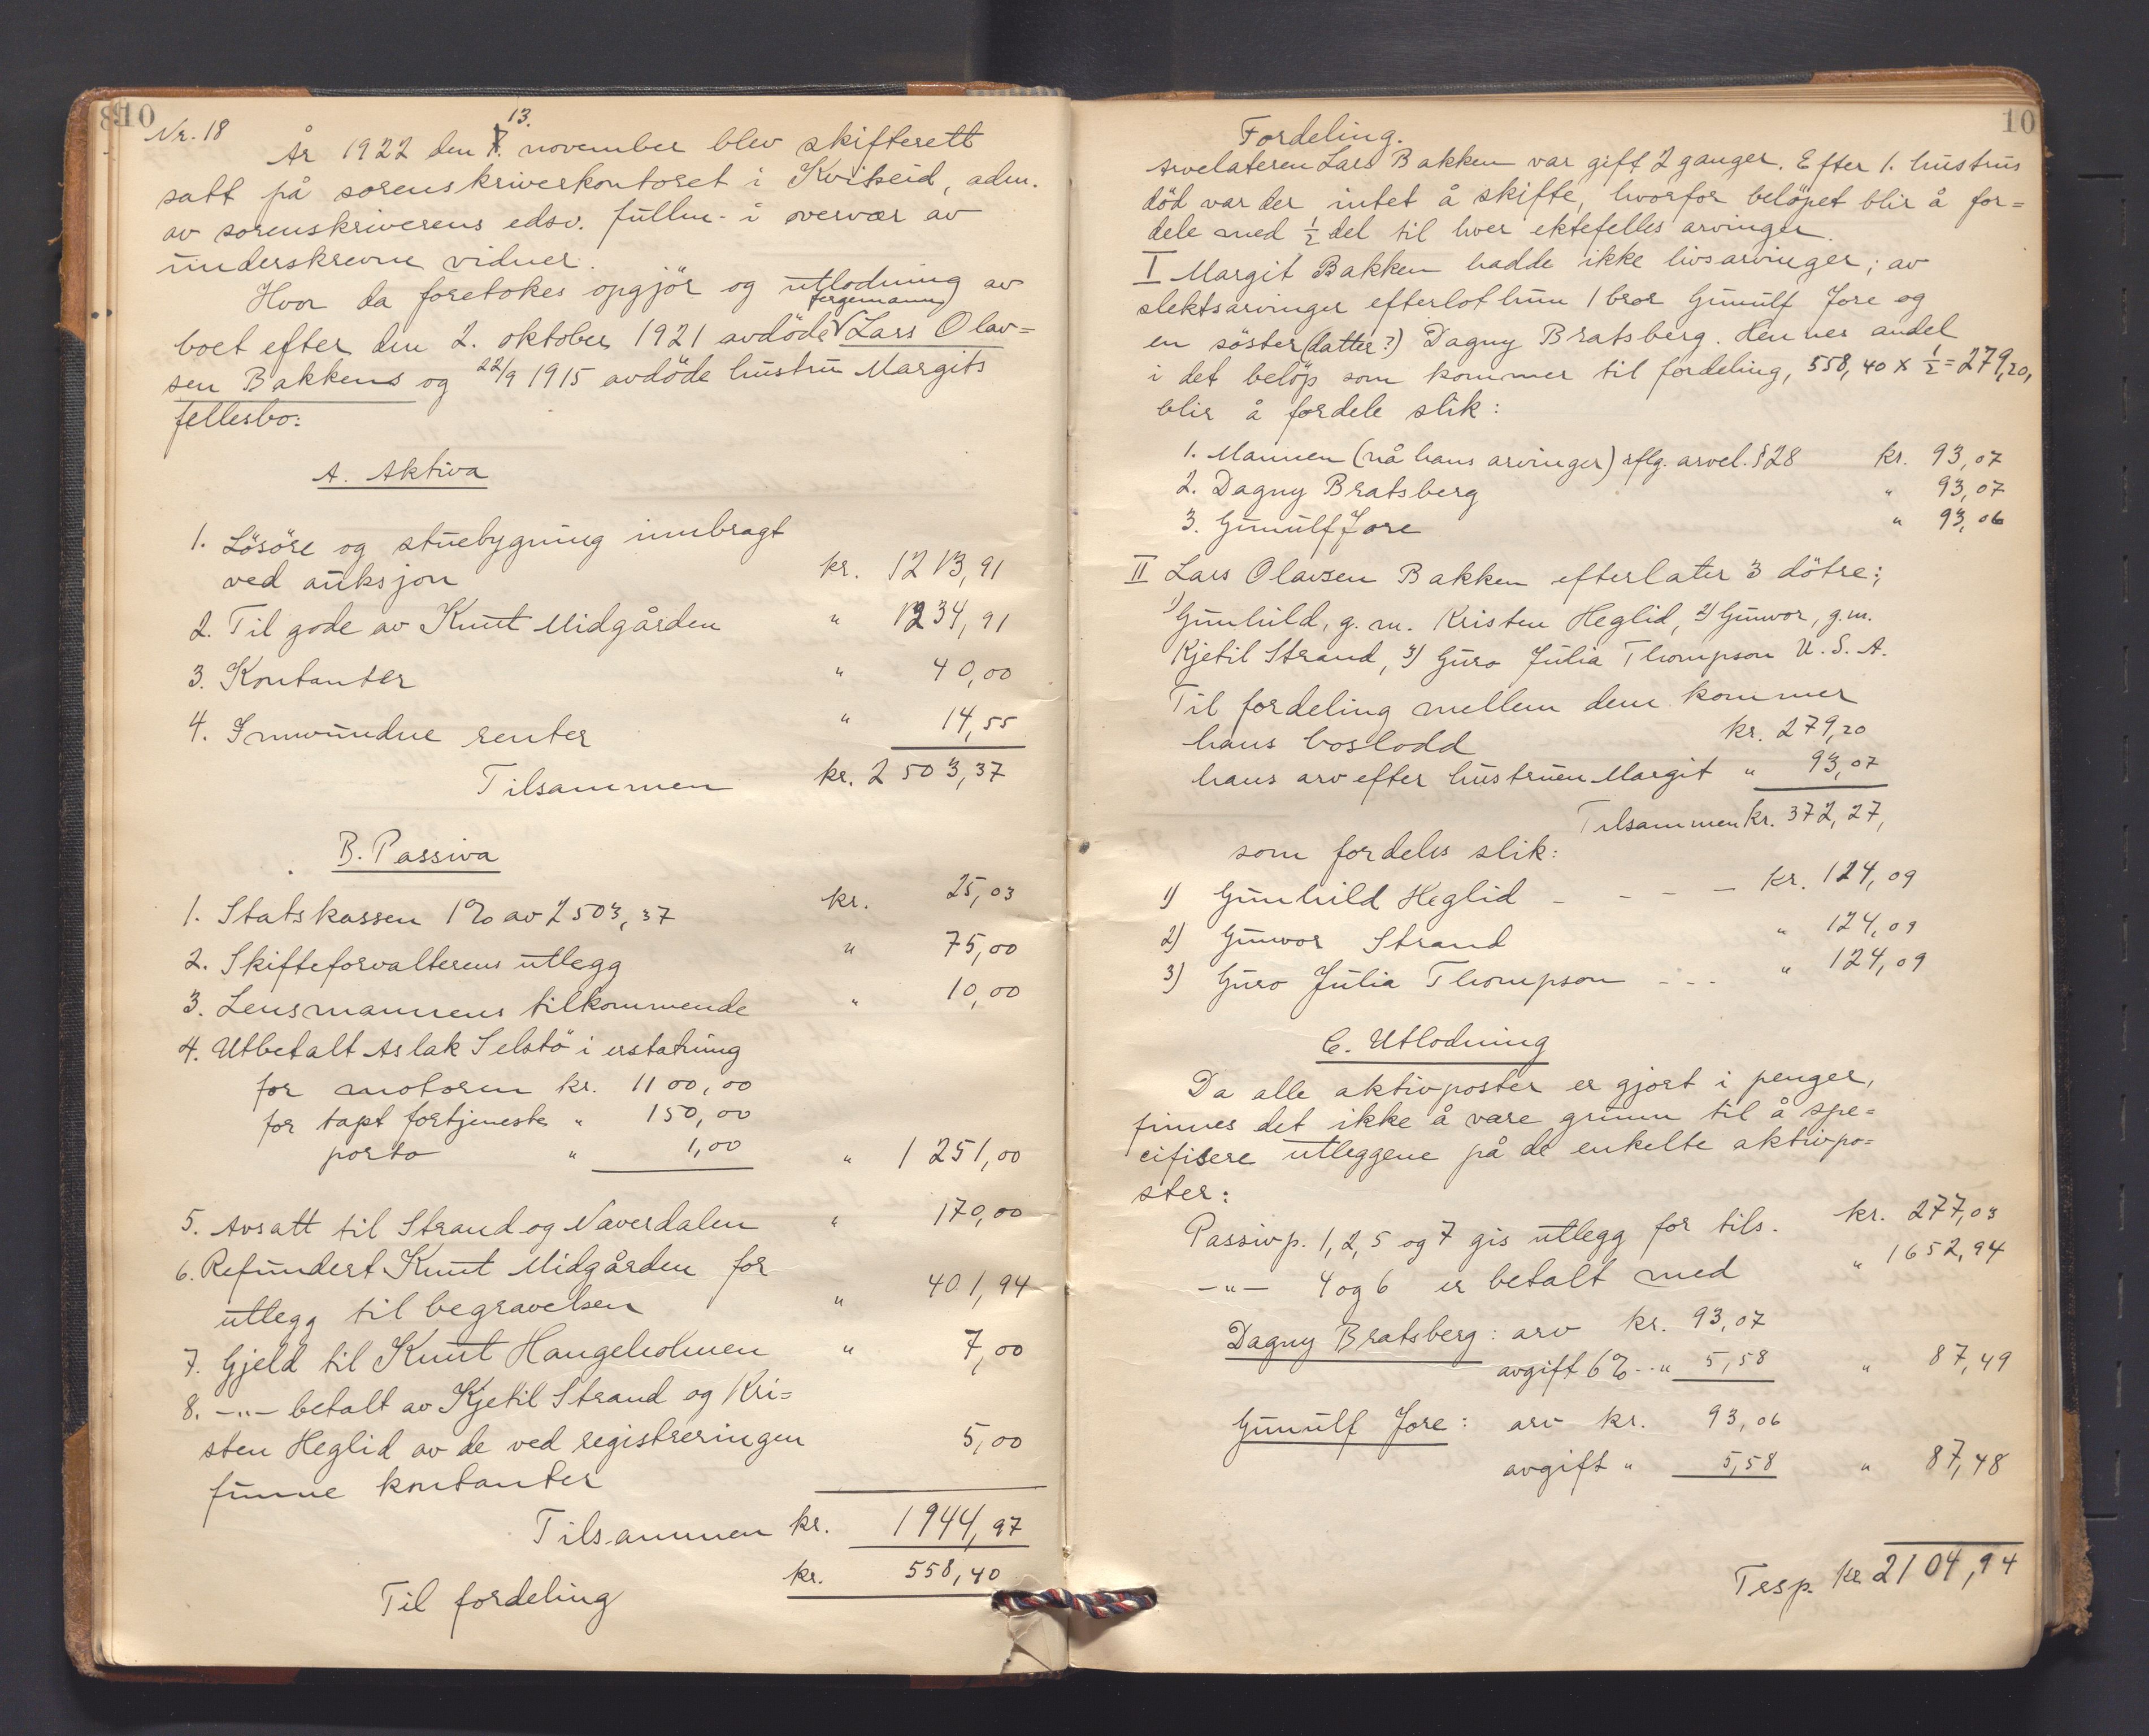 10
Nr. 18
År 1922 den 7. 13. november blev skifterett
satt på sorenskriverkontoret i Kviteseid, adm.
av sorenskriverens edsv. fullm. i overvær av
underskrevne vidner.
Hvor da foretokes opgjör og utlodning av
boet efter den 2. oktober 1921 avdöde fergemann Lars Olav=
sen Bakkens og 22/9 1915 avdöde hustru Margits
fellesbo:
A. Aktiva
1. Lösöre og stuebygning innbragt
ved auksjon kr. 1213,91
2. Til gode av Knut Midgården " 1234,91
3. Kontanter " 40,00
4. Innvundne renter " 14,55
Tilsammen kr. 2503,37
B. Passiva
1. Statskassen 1% av 2503,37 kr. 25,03
2. Skifteforvalterens utlegg " 75,00
3. Lensmannens tilkommende " 10,00
4. Utbetalt Aslak Selstö i erstatning
for motoren kr. 1100,00
for tapt fortjeneste " 150,00
porto " 1,00 " 1251,00
5. Avsatt til Strand og Naverdalen " 170,00
6. Refundert Knut Midgården for
utlegg til begravelsen " 401,94
7. Gjeld til Knut Haugeholmen " 7,00
8. -"- betalt av Kjetil Strand og Kri=
sten Heglid av de ved registreringen
funne kontanter 5,00
Tilsammen kr. 1944,97
Til fordeling kr. 558,40
10
Fordeling.
Arvelateren Lars Bakken var gift 2 ganger. Efter 1. hustrus
död var der intet å skifte, hvorfor belöpet blir å for=
dele med ½ del til hver ektefelles arvinger.
I Margit Bakken hadde ikke livsarvinger; av
slektsarvinger efterlot hun 1 bror Gunulf Jore og
en söster (datter?) Dagny Bratsberg. Hennes andel
i det belöp som kommer til fordeling, 558,40 x ½ = 279,20,
blir å fordele slik:
1. Mannen (nå hans arvinger) iflg. arvel. § 28 kr. 93,07
2. Dagny Bratsberg " 93,07
3. Gunulf Jore " 93,06
II Lars Olavsen Bakken efterlater 3 dötre:
1) Gunhild, g. m. Kristen Heglid, 2) Gunvor, g. m.
Kjetil Strand, 3) Guro Julia Thompson U. S. A.
Til fordeling mellem dem kommer
hans boslodd kr. 279,20
hans arv efter hustruen Margit " 93,07
Tilsammen kr. 372,27,
som fordeles slik:
1) Gunhild Heglid - - - kr. 124,09
2) Gunvor Strand " 124,09
3) Guro Julia Thompson - - - " 124,09
C. Utlodning
Da alle aktivposter er gjort i penger,
finnes det ikke å være grunn til å spe=
cifisere utleggene på de enkelte aktivpo=
ster:
Passivp. 1, 2, 5 og 7 gis utlegg for tils. kr. 277,03
-"- 4 og 6 er betalt med " 1652,94
Dagny Bratsberg: arv kr. 93,07
avgift 6% -- " 5,58 " 87,49
Gunulf Jore: arv kr. 93,06
avgift " 5,58 " 87,48
Trsp. kr 2104,94